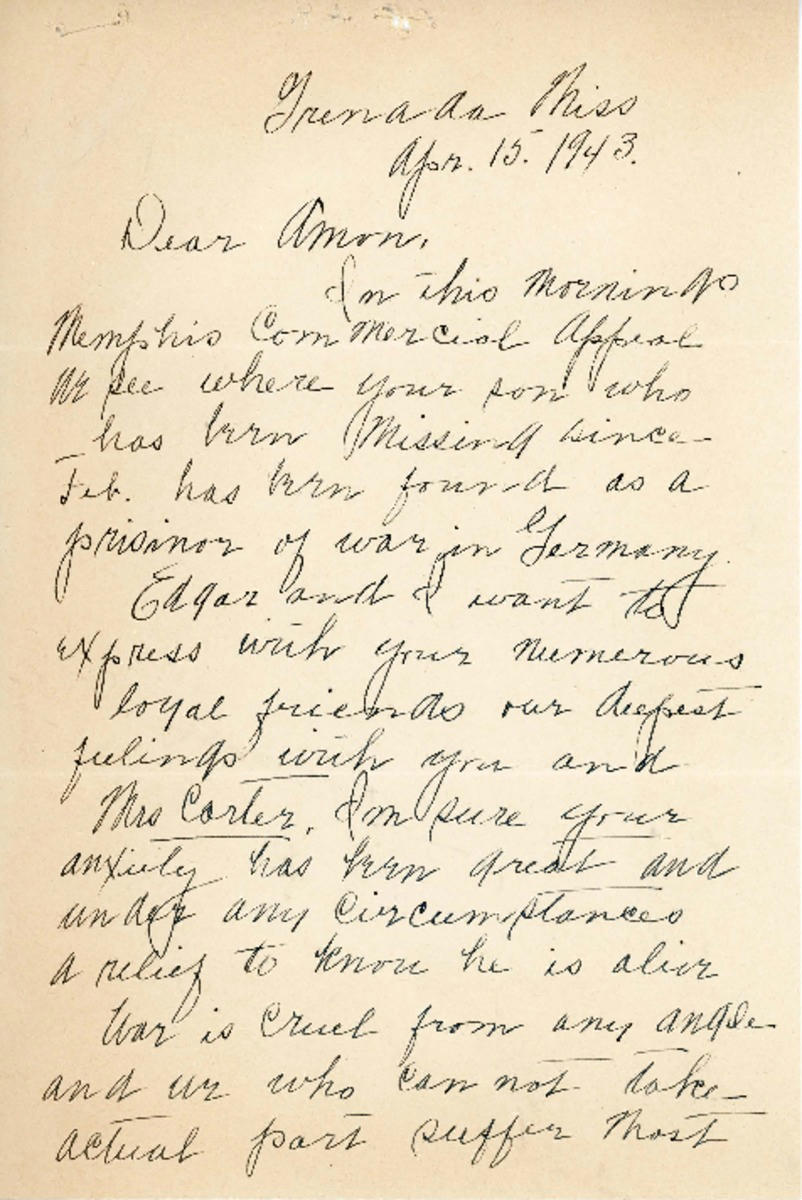 Grenada Miss
Apr. 15. 1943.
Dear Amon,
In this mornings
Memphis Commercial Appeal
we see where your son who
has been missing since
Feb. has been found as a
prisinor of war in Germany.
Edgar and I want to
express with your numerous
loyal friends our deepest
feelings with you and
Mrs Carter. I'm sure your
anxiety has been great and
under any circumstances
a relief to know he is alive
War is cruel from any angle
and we who can not take
actual part suffer most